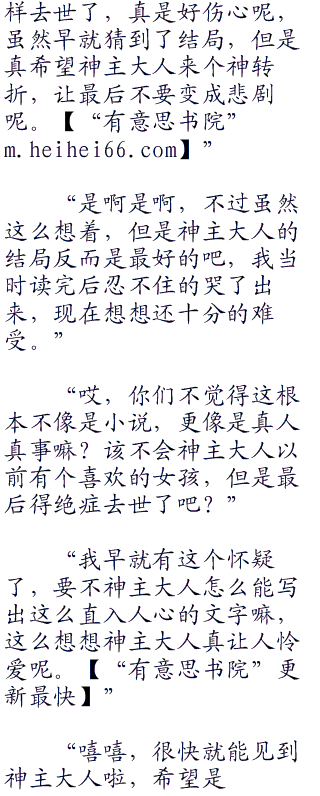 样去世了，真是好伤心呢，
虽然早就猜到了结局，但是
真希望神主大人来个神转
折，让最后不要变成悲剧
呢。【“有意思书院”
m.heihei66.com】”
“是啊是啊，不过虽然
这么想着，但是神主大人的
结局反而是最好的吧，我当
时读完后忍不住的哭了出
来，现在想想还十分的难
受。”
“哎，你们不觉得这根
本不像是小说，更像是真人
真事嘛？该不会神主大人以
前有个喜欢的女孩，但是最
后得绝症去世了吧？”
“我早就有这个怀疑
了，要不神主大人怎么能写
出这么直入人心的文字嘛，
这么想想神主大人真让人怜
爱呢。【“有意思书院”更
新最快】”
“嘻嘻，很快就能见到
神主大人啦，希望是